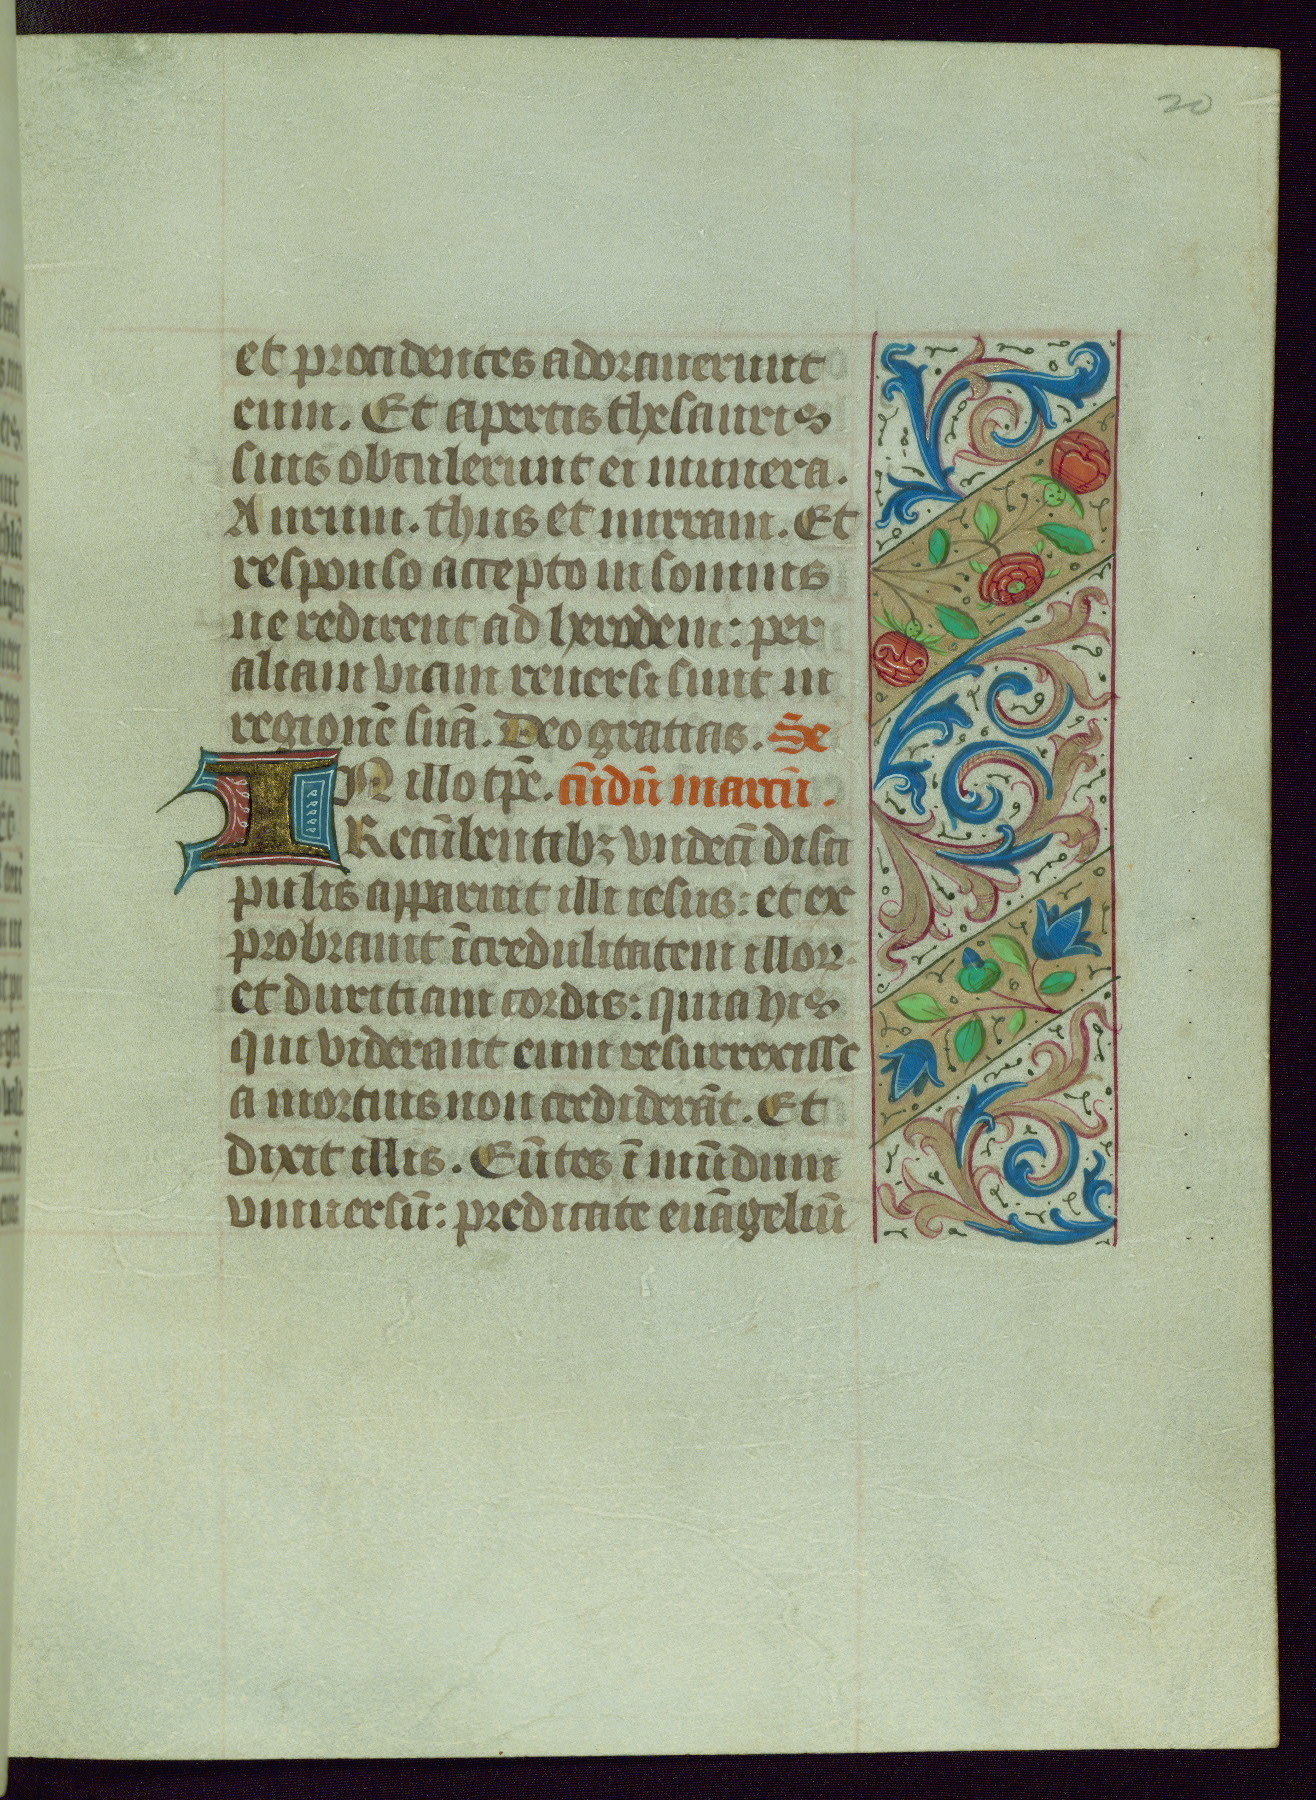 20
et procidentes adorauerunt
eum. Et apertis thesauris
suis obtulerunt ei munera.
Aurum. thus et mirram. Et
responso accepto in somnis
ne redirent ad herodem: per
aliam viam reuersi sunt in
regionē suā. Deo gratias. Se
IN illo tp̄e. cūdū marcū.
Recūbentibꝫ vndecī disci
pulis apparuit illi iesus: et ex
probrauit īcredulitatem illoꝝ
et duritiam cordis: quia his
qui viderant eum resurrexisse
a mortuis non crediderāt. Et
dixit illis. Eūtes ī mūdum
vniuersū: predicate euāgeliū